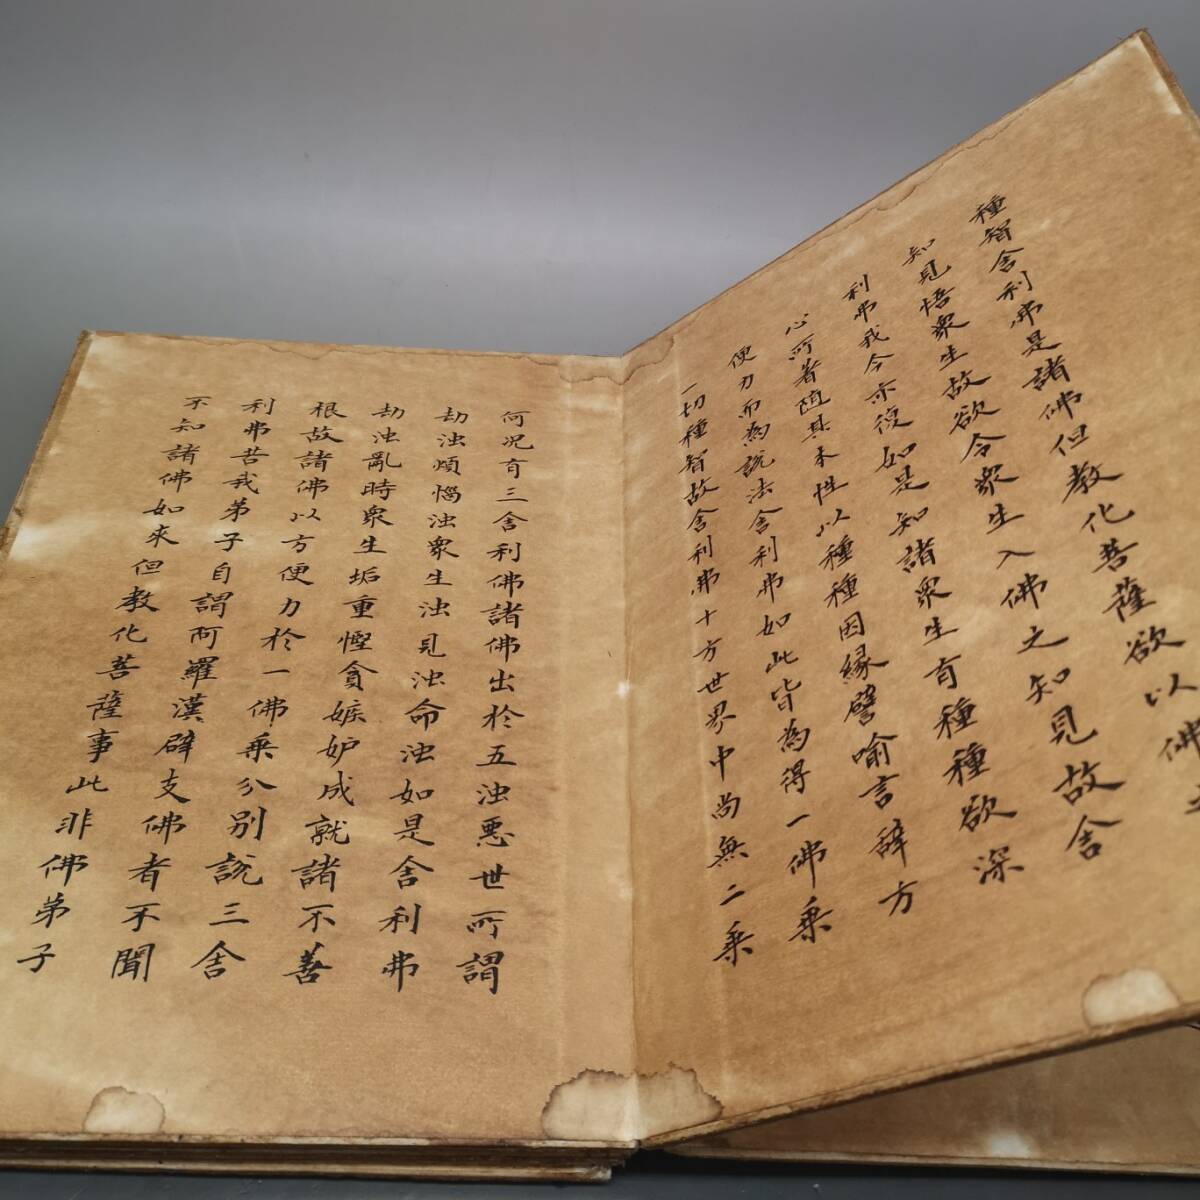 種智舍利佛是諸佛但教化菩薩欲以佛
知見悟衆生故欲令衆生入佛之知見故舍
利弗我今亦復如是知諸衆生有種種欲深
心所著随其本性以種種因緣譬喻言辭方
便力而為說法舍利弗如此皆為得一佛乘
一切種智故舍利弗十方世界中尚無二乘
何况有三舍利佛諸佛出於五浊悪世所謂
劫浊煩惱浊衆生浊見浊命浊如是舍利弗
劫浊亂時衆生垢重慳貪嫉妒成就諸不善
根故諸佛以方便力於一佛乘分別說三舍
利弗若我弟子自謂阿羅漢辟支佛者不聞
不知諸佛如来但教化菩薩事此非佛弟子